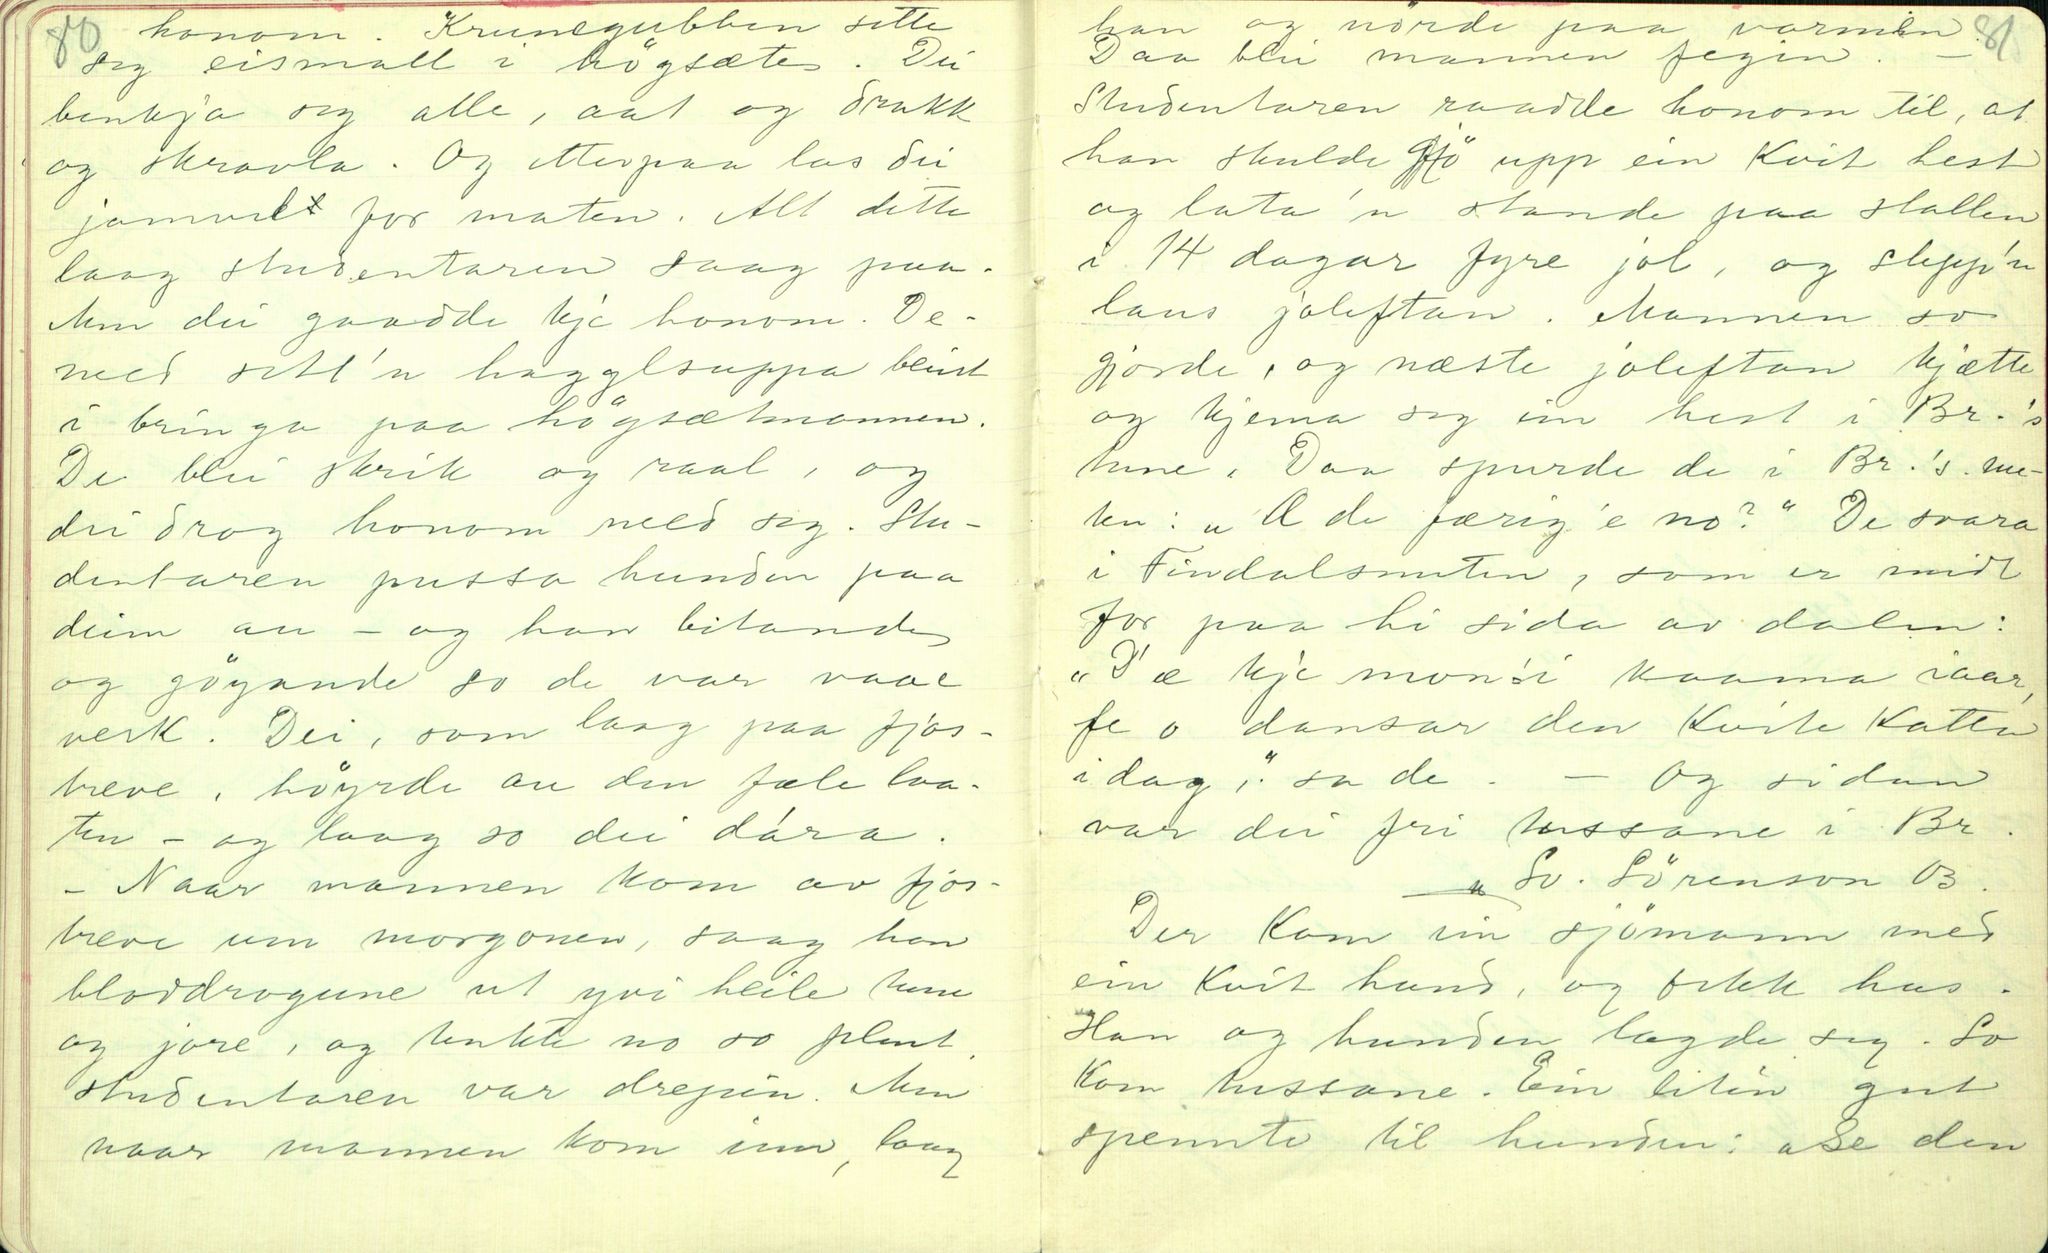 80
honom. Krunegubben sette
seg eismall i högsæte. Dei
benkja seg alle, aat og drakk
og skravla. Og etterpaa las dei
jamvelt for maten. Alt dette
laag studentaren saag paa.
Men dei gaadde kje honom. De-
med sett'n hagglsuppa beint
i bringa paa högsætmannen.
De blei skrik og raal, og
dei drog honom med seg. Stu-
dentaren pussa hunden paa
deim au - og han bitande
og göyande so de var vaae
verk. Dei, som laag paa fjos-
treve, höyrde au den fæle laa-
ten - og laag so dei dára.
- Naar mannen kom av fjos-
treve um morgonen, saag han
bloddrogene ut yvi heile tune
og jore, og tenkte no so plent,
studentaren var drepin. Men
naar mannen kom inn, laag
81
han og nörde paa varmen.
Daa blei mannen fegin. -
Studentaren raadde honom til, at
han skulde gjö upp ein kvit hest
og lata'n stande paa stallen
i 14 dagar fyre jol, og slepp'n
laus joleftan. Mannen so
gjorde, og næste joleftan kjætte
og kjema seg ein hest i Br.'s
tune. Daa spurde de i Br.'s nu-
ten: „Æ de færig'e no?“ De svara
i Findalsnuten, som er midt
for paa hi sida av dalen:
„D'æ kje mon'si kaama iaar,
fe o dansar den kvite katten
idag,“ sa de. - Og sidan
var dei fri tussane i Br.
„ So. Sörenson Ö3.
Der kom ein sjömann med
ein kvit hund, og fekk hus.
Han og hunden lagde seg. So
kom tussane. Ein liten gut
spennte til hunden: „Se den